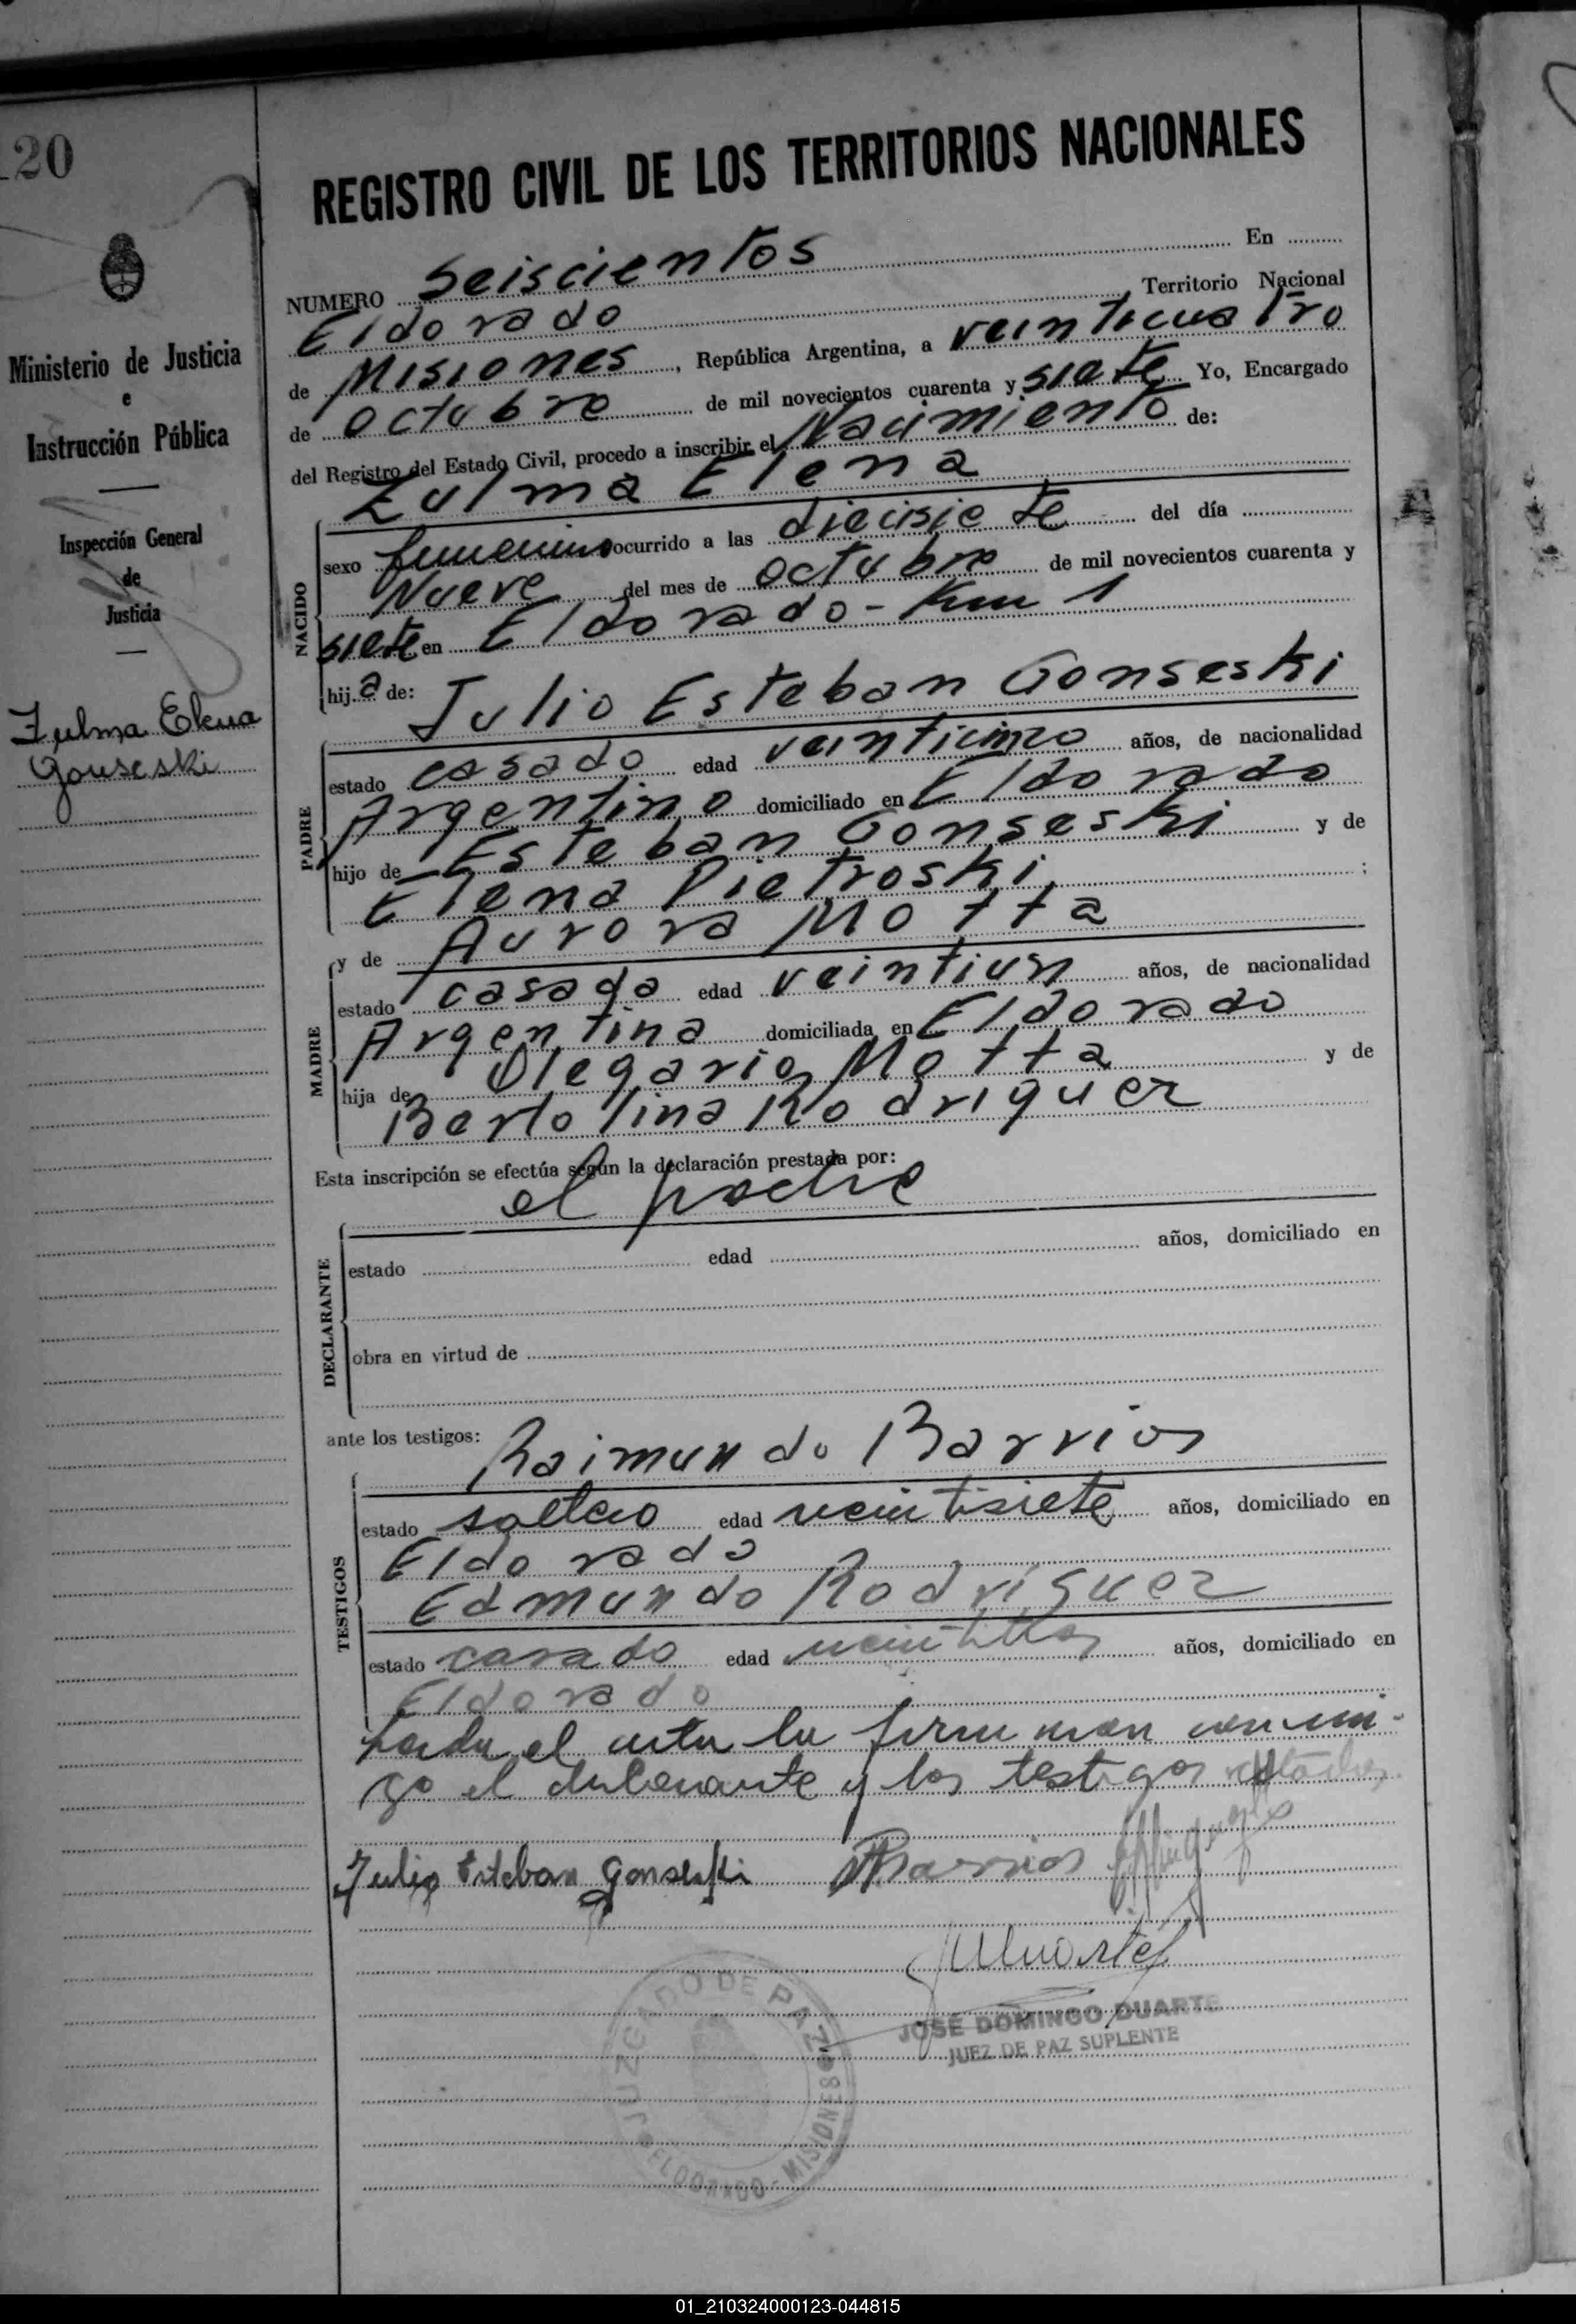 120
Ministerio de Justicia
e
Instrucción Pública
Inspección General
de
Justicia
Zulma Elena
Gonseski
REGISTRO CIVIL DE LOS TERRITORIOS NACIONALES
NUMERO Seiscientos En
Eldorado Territorio Nacional
de Misiones, República Argentina, a veinticuatro
de octubre de mil novecientos cuarenta y siete Yo, Encargado
del Registro del Estado Civil, procedo a inscribir el Nacimiento de:
Zulma Elena
NACIDO
sexo femenino ocurrido a las diecisiete del día
Nueve del mes de octubre de mil novecientos cuarenta y
siete en Eldorado - Km 1
hija de: Julio Esteban Gonseski
PADRE
estado casado edad veinticinco años, de nacionalidad
Argentino domiciliado en Eldorado
hijo de Esteban Gonseski y de
Elena Pietroski ;
y de Aurora Motta
MADRE
estado casada edad veintiun años, de nacionalidad
Argentina domiciliada en Eldorado
hija de Olegario Motta y de
Bertolina Rodriguez
Esta inscripción se efectúa según la declaración prestada por:
el padre
DECLARANTE
estado edad años, domiciliado en
obra en virtud de
ante los testigos: Raimundo Barrios
TESTIGOS
estado soltero edad veintisiete años, domiciliado en
Eldorado
Edmundo Rodríguez
estado casado edad años, domiciliado en
Eldorado
Leida el acta la firman conmi-
go el declarante y los testigos citados
Julio Esteban Gonseski Barrios
JOSÉ DOMINGO DUARTE
JUEZ DE PAZ SUPLENTE
JUZGADO DE PAZ
ELDORADO - MISIONES
01_210324000123-044815